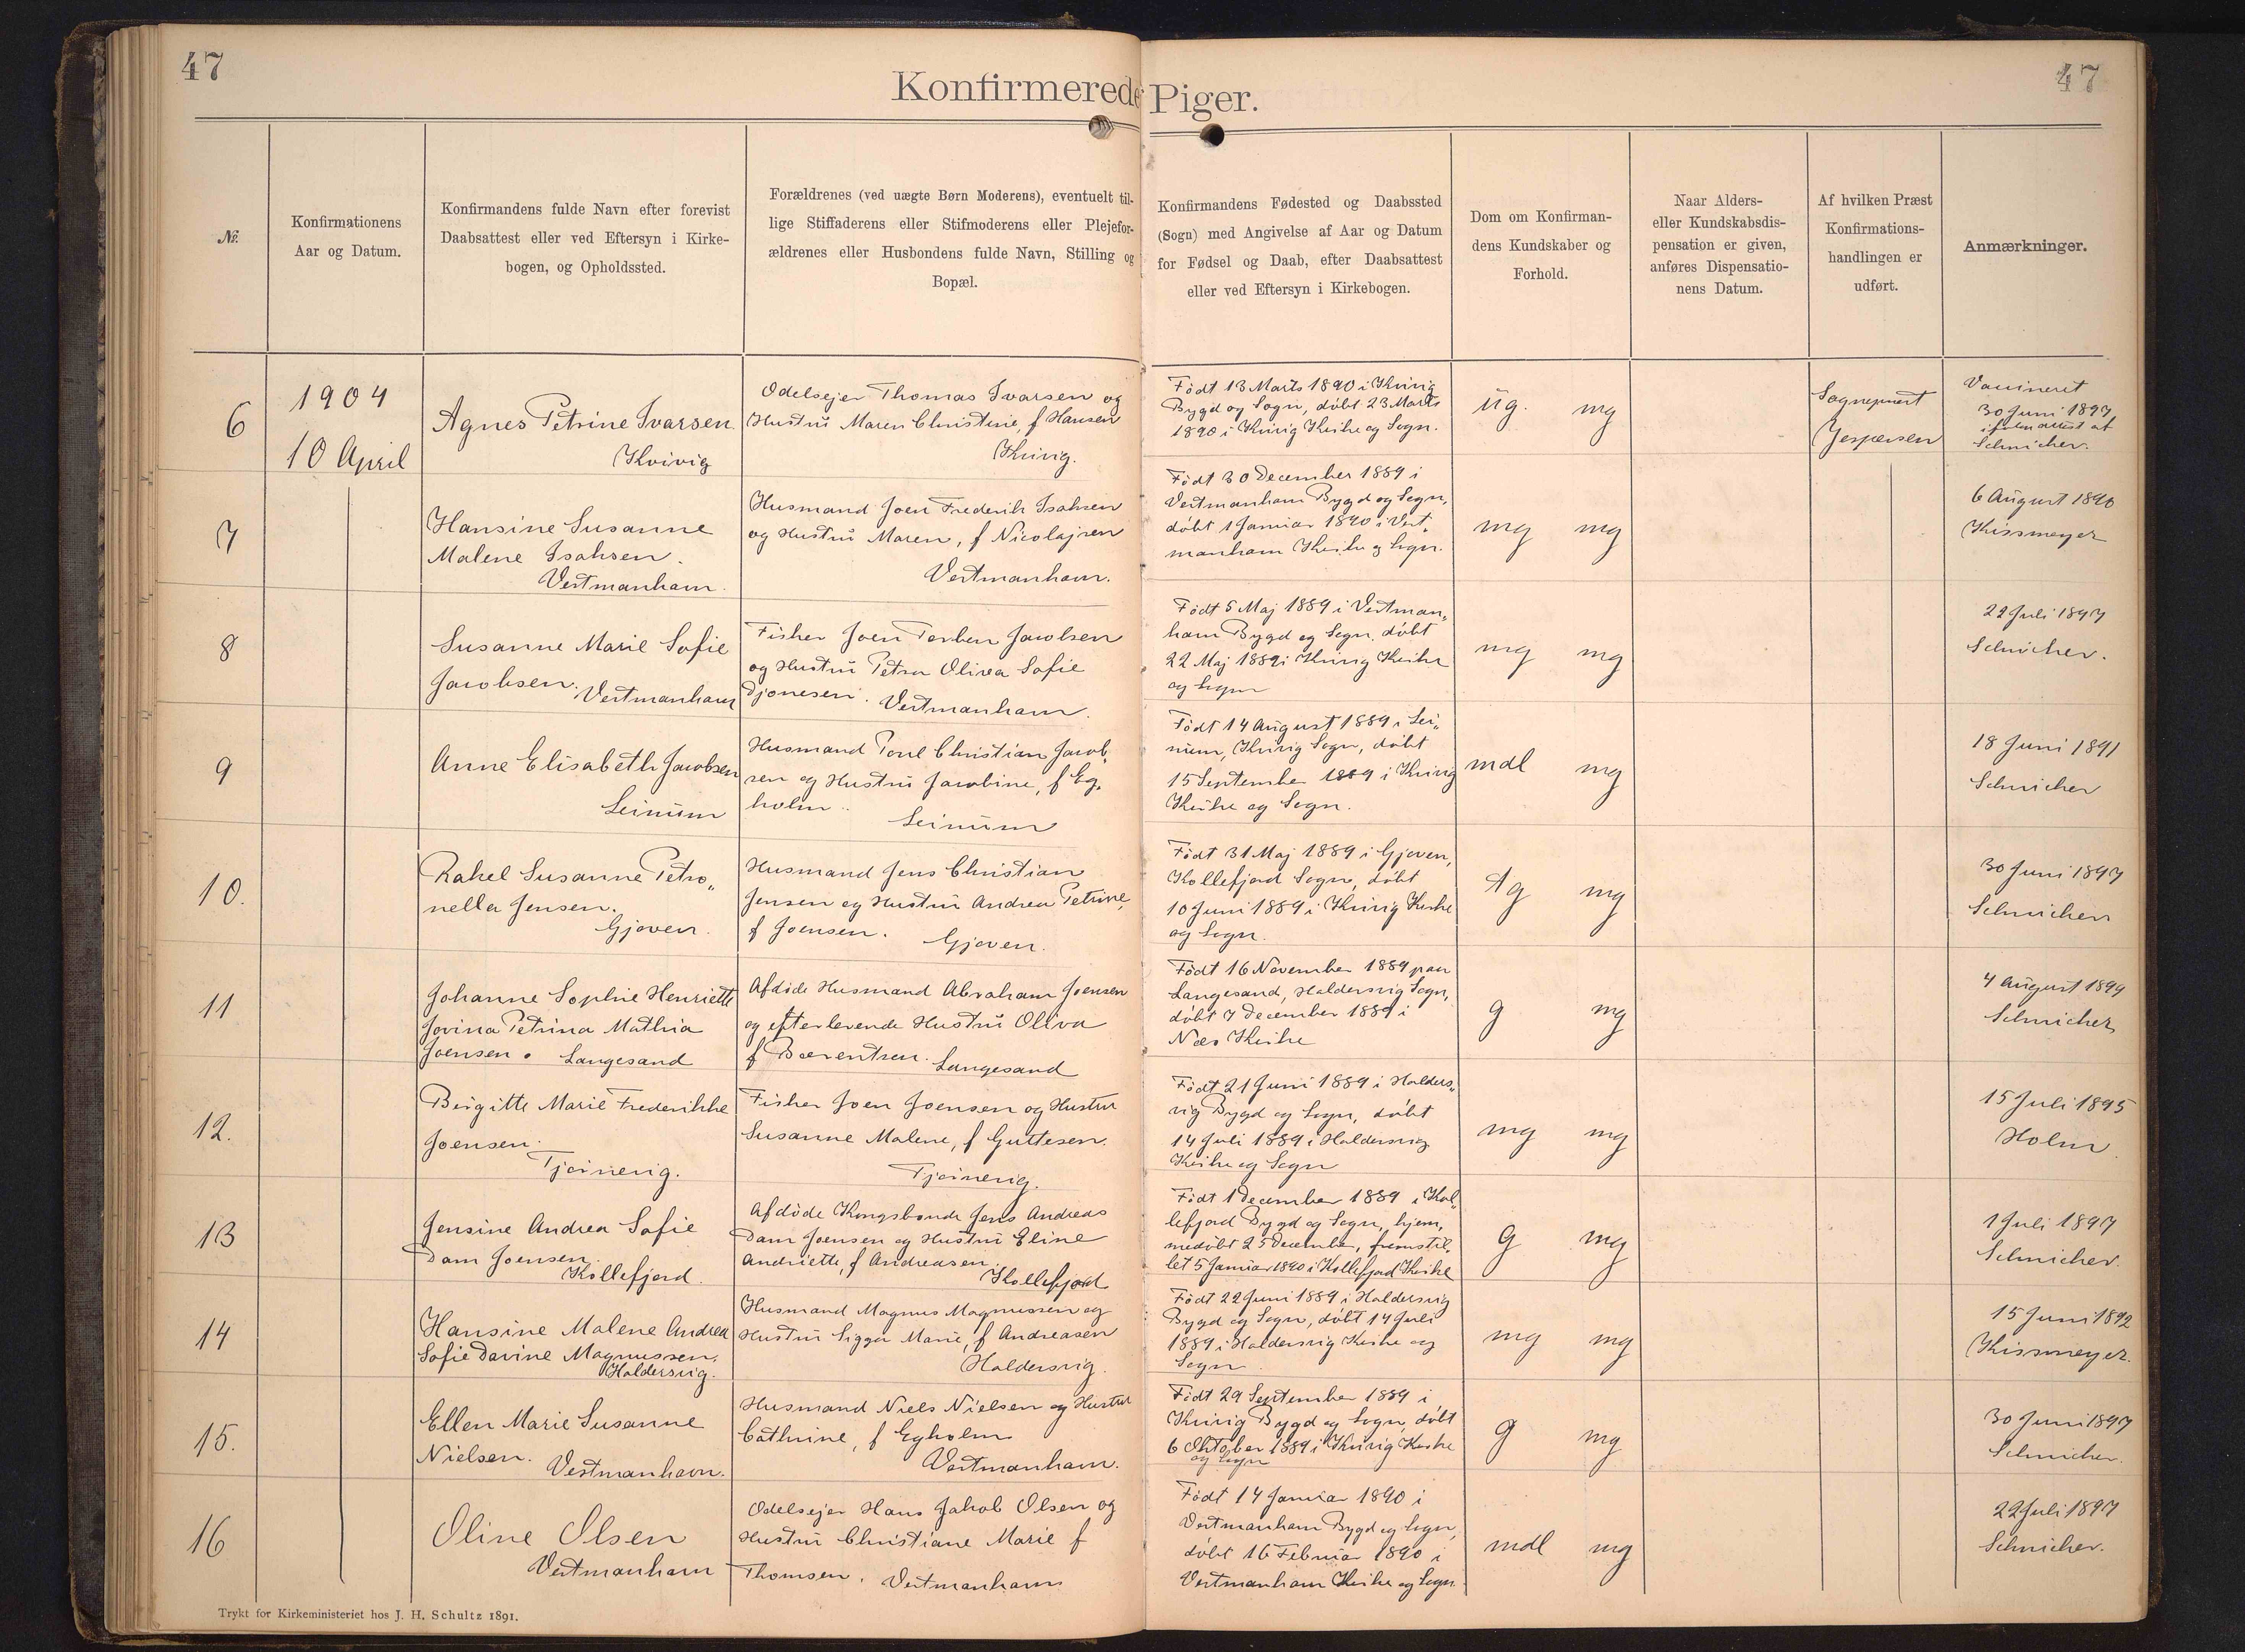 47
47
Konfirmerede Piger.
№.
Konfirmationens
Aar og Datum.
Konfirmandens fulde Navn efter forevist
Daabsattest eller ved Eftersyn i Kirke-
bogen, og Opholdssted.
Forældrenes (ved uægte Børn Moderens), eventuelt til-
lige Stiffaderens eller Stifmoderens eller Plejefor-
ældrenes eller Husbondens fulde Navn, Stilling og
Bopæl.
Konfirmandens Fødested og Daabssted
(Sogn) med Angivelse af Aar og Datum
for Fødsel og Daab, efter Daabsattest
eller ved Eftersyn i Kirkebogen.
Dom om Konfirman-
dens Kundskaber og
Forhold.
Naar Alders-
eller Kundskabsdis-
pensation er given,
anføres Dispensatio-
nens Datum.
Af hvilken Præst
Konfirmations-
handlingen er
udført.
Anmærkninger.
6
1904
10 April
Agnes Petrine Ivarsen
Kvivig
Odelsejer Thomas Ivarsen og
Hustrü Maren Christine, f Hansen
Kvivig.
Född 13 Marts 1890 i Kvivig
Bygd og Sogn, döbt 23 Marts
1890 i Kvivig Kirke og Sogn.
üg. mg
Sognepræst
Jespersen
Vaccineret
30 Juni 1897
attest af
Schnicher.
7
Hansine Susanne
Malene Isaksen.
Vestmanhavn.
Husmand Joen Frederik Isaksen
og Hustrü Maren, f Nicolajsen
Vestmanhavn.
Født 30 December 1889 i
Vestmanhavn Bygd og Sogn,
döbt 1 Januar 1890 i Vest„
manhavn Kirke og Sogn.
mg mg
6 Aügust 1890
Kissmeyer
8
Susanne Marie Sofie
Jacobsen. Vestmanhavn
Fisker Joen Torben Jacobsen
og Hustrü Petra Oliva Sofie
Djonesen. Vestmanhavn.
Født 5 Maj 1889 i Vestman„
havn Bygd og Sogn, döbt
22 Maj 1889 i Kvivig Kirke
og Sogn
mg mg
22 Juli 1897
Schnicher.
9
Anne Elisabeth Jacobsen
Leinüm
Husmand Poul Christian Jacob„
sen og Hustrü Jacobine, f Eg„
holm. Leinüm
Født 14 Aügust 1889 i Lei„
nüm, Kvivig Sogn, döbt
15 September 1889 i Kvivig
Kirke og Sogn.
mdl mg
18 Juni 1891
Schnicher
10.
Rakel Susanne Petro„
nella Jensen.
Gjoven.
Husmand Jens Christian
Jensen og Hustrü Andrea Petrine,
f Joensen. Gjoven.
Født 31 Maj 1889 i Gjoven,
Kollefjord Sogn, döbt
10 Juni 1889 i Kvivig Kirke
og Sogn.
tg mg
30 Juni 1897
Schnicher
11
Johanne Sophie Henriette
Jovina Petrina Mathia
Joensen. Langesand
Afdöde Husmand Abraham Joensen
og efterlevende Hustrü Oliva
f Bærentsen. Langesand
Født 16 November 1889 paa
Langesand, Haldersvig Sogn,
döbt 7 December 1889 i
Næs Kirke
g mg
4 Aügust 1899
Schnicher
12.
Birgitte Marie Frederikke
Joensen.
Tjörnevig.
Fisker Joen Joensen og Hustru
Susanne Malene, f Guttesen.
Tjörnevig.
Født 21 Juni 1889 i Halders„
vig Bygd og Sogn, döbt
14 Juli 1889 i Haldersvig
Kirke og Sogn
mg mg
15 Juli 1895
Holm.
13
Jensine Andrea Sofie
Dam Joensen.
Kollefjord.
Afdöde Kongsbonde Jens Andreas
Dam Joensen og Hustrü Eline
Andriette, f Andreasen.
Kollefjord
Født 1 December 1889 i Kol„
lefjord Bygd og Sogn, hjem„
medöbt 25 December, fremstil„
let 5 Januar 1890 i Kollefjord Kirke
g mg
1 Juli 1897
Schnicher.
14
Hansine Malene Andrea
Sofie Davine Magnussen.
Haldersvig.
Husmand Magnus Magnussen og
Hustru Sigga Marie, f Andreasen
Haldersvig.
Født 22 Juni 1889 i Haldersvig
Bygd og Sogn, döbt 14 Juli
1889 i Haldersvig Kirke og
Sogn.
mg mg
15 Juni 1892
Kissmeyer.
15.
Ellen Marie Susanne
Nielsen. Vestmanhavn.
Husmand Niels Nielsen og Hustru
Cathrine, f Egholm
Vestmanhavn.
Født 29 September 1889 i
Kvivig Bygd og Sogn, döbt
6 Oktober 1889 i Kvivig Kirke
og Sogn
g mg
30 Juni 1897
Schnicher.
16
Oline Olsen
Vestmanhavn
Odelsejer Hans Jakob Olsen og
Hustrü Christiane Marie f
Thomsen. Vestmanhavn
Født 14 Januar 1890 i
Vestmanhavn Bygd og Sogn,
döbt 16 Februar 1890 i
Vestmanhavn Kirke og Sogn.
mdl mg
22 Juli 1897
Schnicher.
Trykt for Kirkeministeriet hos J. H. Schultz 1891.